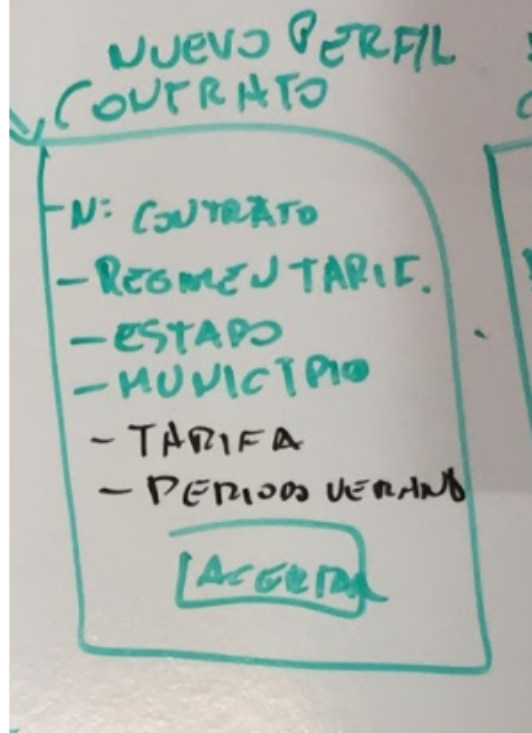 NUEVO PERFIL
CONTRATO
- N: CONTRATO
- REGIMEN TARIF.
- ESTADO
- MUNICIPIO
- TARIFA
- PERIODO VERANO
ACEPTAR